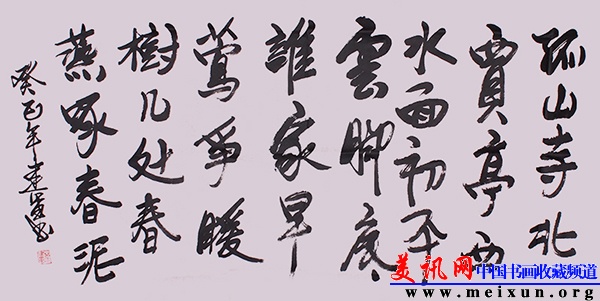 孤山寺北
賈亭西
水面初平
雲脚底
誰家早
鶯爭暖
樹几处春
燕啄春泥
癸巳年
美讯网 中国书画收藏频道
www.meixun.org